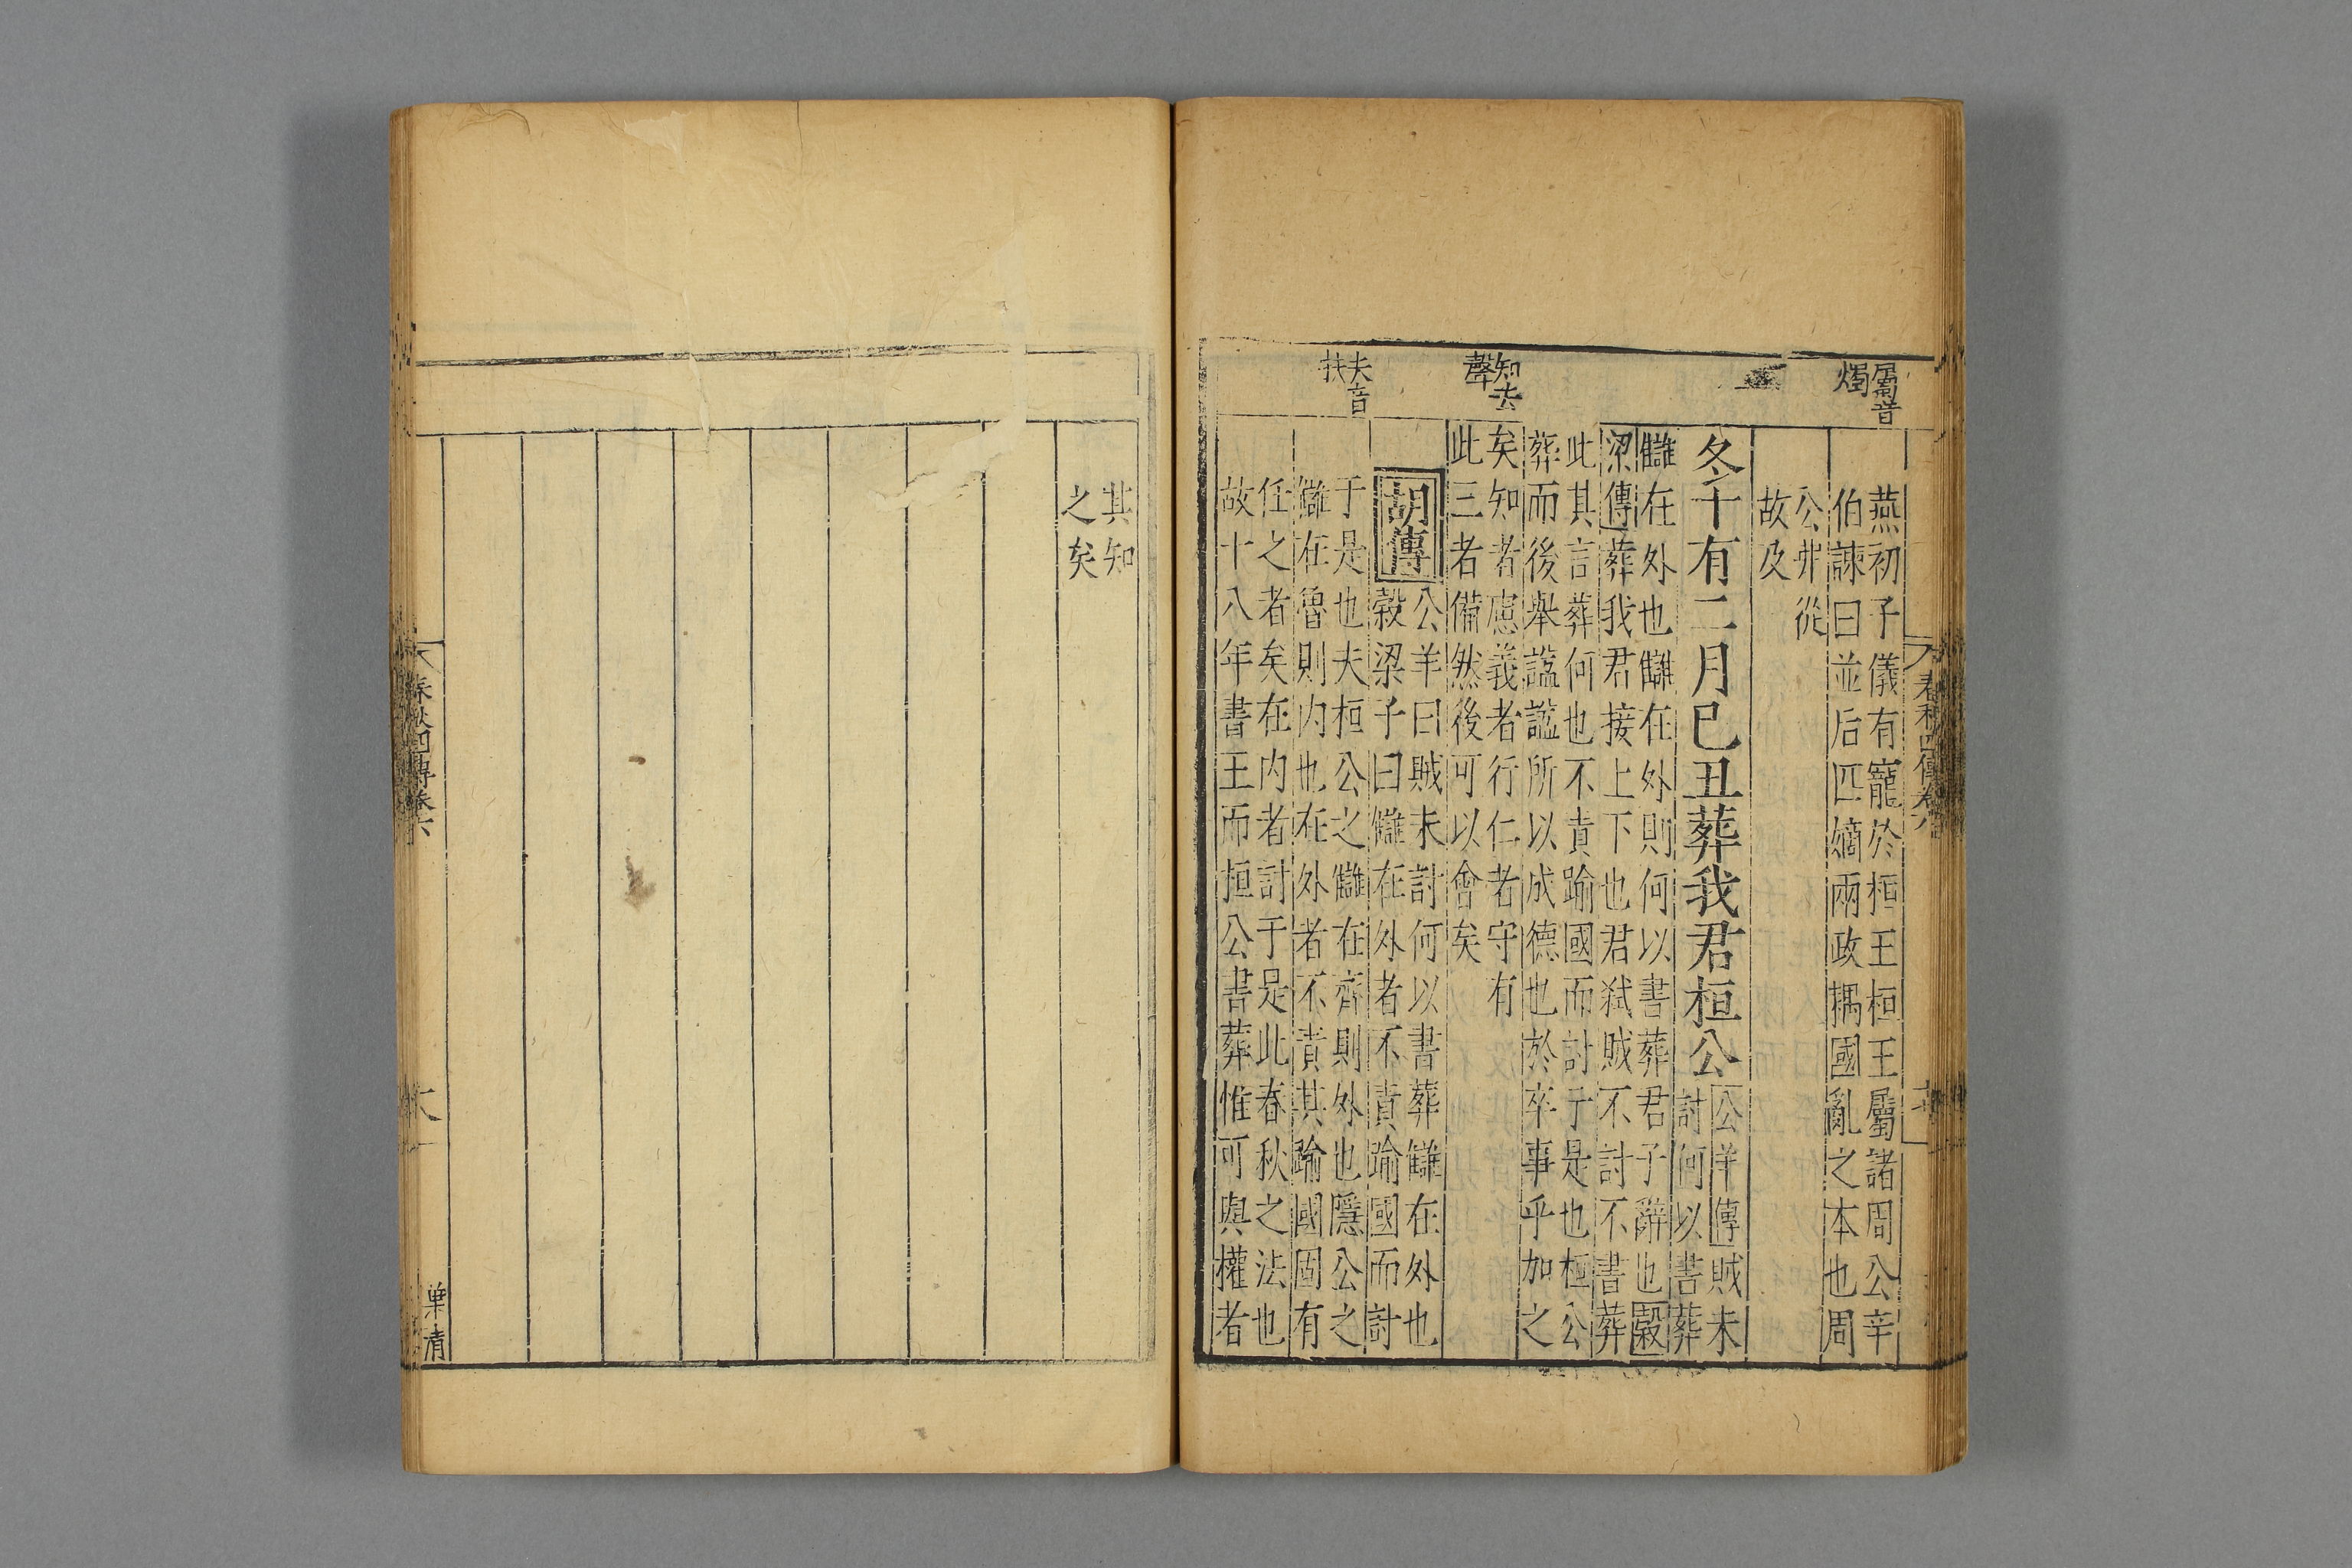 屬音
燭
知去
聲
夫音
扶
燕初子儀有寵於桓王桓王屬諸周公辛
伯諫曰並后匹嫡兩政耦國亂之本也周
公弗從
故及
冬十有二月己丑葬我君桓公
公羊傳賊未
討何以書葬
讎在外也讎在外則何以書葬君子辭也穀
梁傳葬我君接上下也君弒賊不討不書葬
此其言葬何也不責踰國而討于是也桓公
葬而後舉諡諡所以成德也於卒事乎加之
矣知者慮義者行仁者守有
此三者備然後可以會矣
胡傳
公羊曰賊未討何以書葬讎在外也
穀梁子曰讎在外者不責踰國而討
于是也夫桓公之讎在齊則外也隱公之
讎在魯則內也在外者不責其踰國固有
任之者矣在內者討于是此春秋之法也
故十八年書王而桓公書葬惟可與權者
其知
之矣
春秋四傳卷六